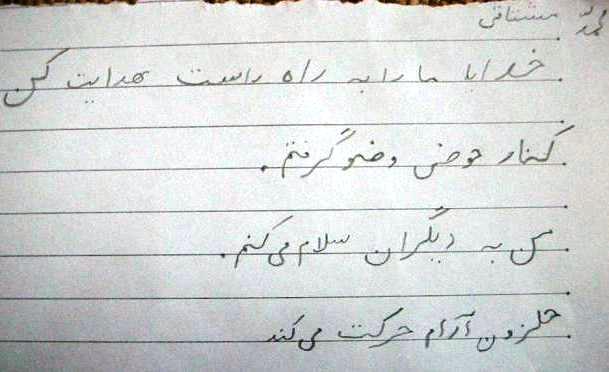 محمد مشتاقی
خدایا ما را به راه راست هدایت کن
کنار حوض وضو گرفتم.
من به دیگران سلام می‌کنم.
حلزون آرام حرکت می‌کند